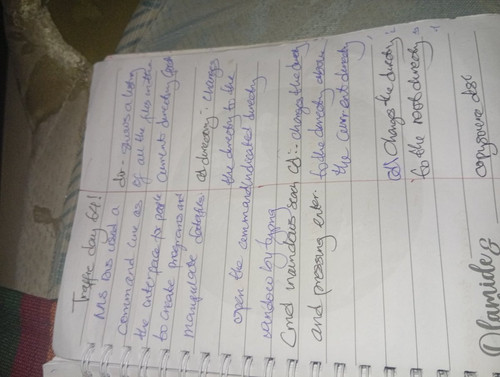 Traffic day 69!
Ms Dos used a
Command line as
the interface for people
to create programs and
manipulate
open the command
window by typing
Cmd in windows sear
and pressing enter.
dir - gives a listing
of all the files in the
current directory
cd directory: changes
the directory to the
indicated directory
cd..: changes the directory
to the directory above
the current directory
cd\ changes the directory
to the root directory
copy source dst
Olamide